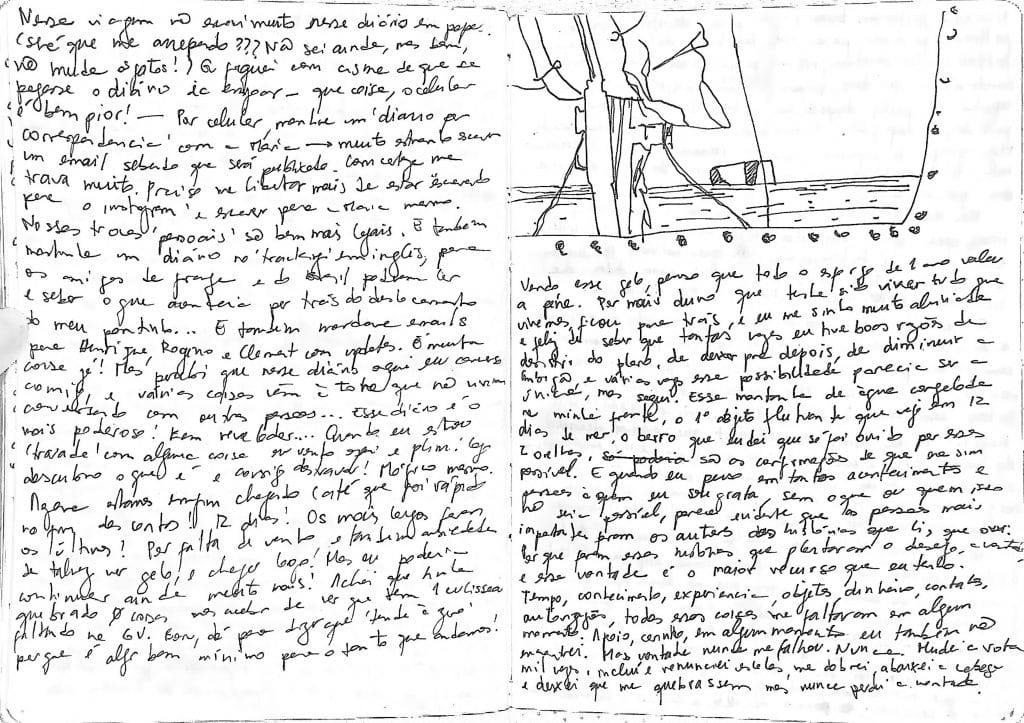 Nessa viagem não escrevi muito nesse diário em papel.
(Será que me arrependo??? Não sei ainda, mas bem,
não muda os fatos!) G fiquei com cisma de que se
pegasse o diário ia enjoar — que coisa, o celular
é bem pior! — Por celular, mantive um 'diário por
correspondência' com a Maria → muito estranho escrever
um email sabendo que será publicado. Com certeza me
trava muito. Preciso me libertar mais de estar escrevendo
para o 'instagram' e escrever para a Maria mesmo.
Nossas trocas 'pessoais' são bem mais legais. E também
mantinha um diário no 'tracking' em inglês, para
os amigos de França e do Brasil poderem ler
e saber o que acontecia por trás do deslocamento
do meu pontinho... E também mandava emails
para Henrique, Rogino e Clement com updates. É muita
coisa já! Mas percebi que nesse diário aqui eu converso
comigo, e várias coisas vêm à tona que não viriam
conversando com outras pessoas... Esse diário é o
mais poderoso! Bem revelador.... Quando eu estou
'travada' com alguma coisa eu venho aqui e plim! logo
descubro o que é e consigo destravar! Mágico mesmo.
Agora estamos enfim chegando (até que foi rápido
no fim das contas!! 12 dias! Os mais longos foram
os últimos! Por falta de vento e também ansiedade
de talvez ver gelo e chegar logo! Mas eu poderia
continuar ainda muito mais! Achei que tinha
quebrado 0 coisas mas acabei de ver que tem 1 culissea
faltando na GV. Bom, dá para dizer que 'tende a zero'
porque é algo bem mínimo para o tanto que andamos!
Vendo esse gelo, penso que todo o esforço de 1 ano valeu
a pena. Por mais duro que tenha sido viver tudo que
vivemos, ficou para trás, e eu me sinto muito aliviada
e feliz de saber que tantas vezes eu tive boas razões de
desistir do plano, de deixar pra depois, de diminuir a
ambição, e várias vezes essa possibilidade parecia ser a
única, mas segui. Essa montanha de água congelada
na minha frente, o 1º objeto flutuante que vejo em 12
dias de mar, o berro que eu dei que só foi ouvido por essas
2 orelhas, só poderia são as confirmações de que era sim
possível. E quando eu penso em tantos acontecimentos e
pessoas a quem eu sou grata, sem o que ou quem isso
não seria possível, parece evidente que as pessoas mais
importantes foram os autores das histórias que li, que ouvi.
Porque foram essas histórias que plantaram o desejo, a vontade
e essa vontade é o maior recurso que eu tenho.
Tempo, conhecimento, experiência, objetos, dinheiro, contatos,
autorização, todas essas coisas me faltaram em algum
momento. Apoio, carinho, em algum momento eu também não
encontrei. Mas vontade nunca me falhou. Nunca. Mudei a rota
mil vezes, incluí e renunciei escalas, me dobrei, abaixei a cabeça
e deixei que me quebrassem mas nunca perdi a vontade.